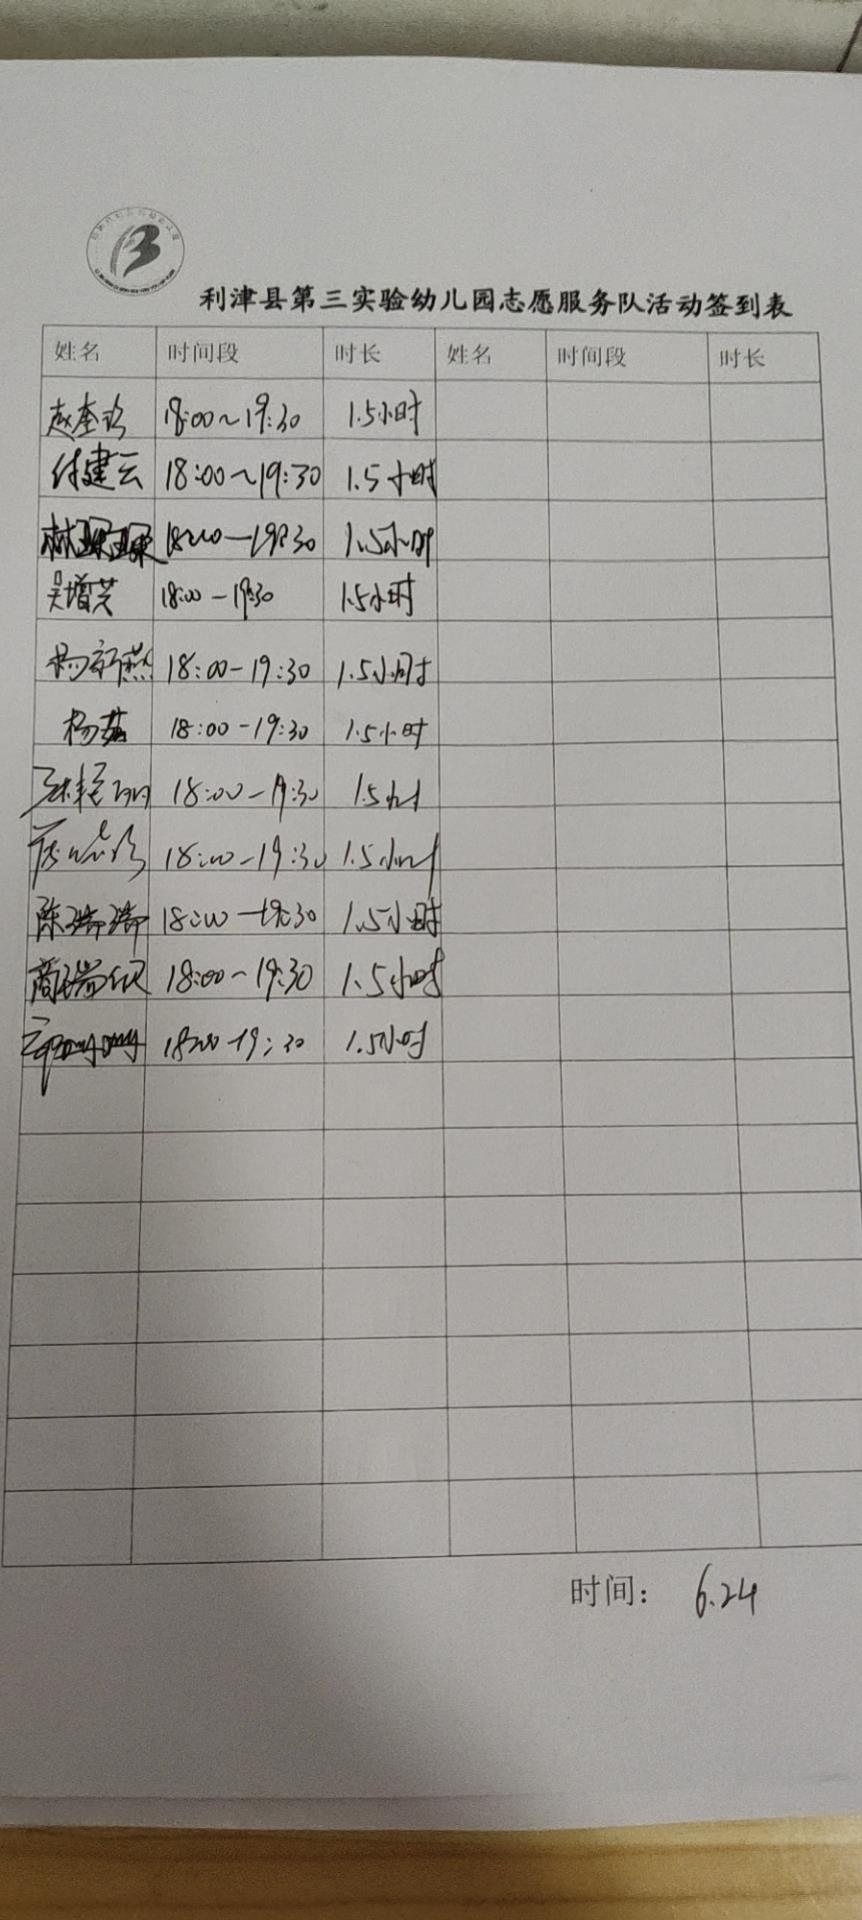 利津县第三实验幼儿园志愿服务队活动签到表
姓名 时间段 时长 姓名 时间段 时长
赵奎 18:00~19:30 1.5小时
付建云 18:00~19:30 1.5小时
林琛琛 18:00-19:30 1.5小时
吴增芝 18:00-19:30 1.5小时
杨新燕 18:00-19:30 1.5小时
杨茹 18:00-19:30 1.5小时
18:00-19:30 1.5小时
18:00-19:30 1.5小时
陈瑞瑞 18:00-19:30 1.5小时
商瑞红 18:00-19:30 1.5小时
18:00-19:30 1.5小时
时间: 6.24